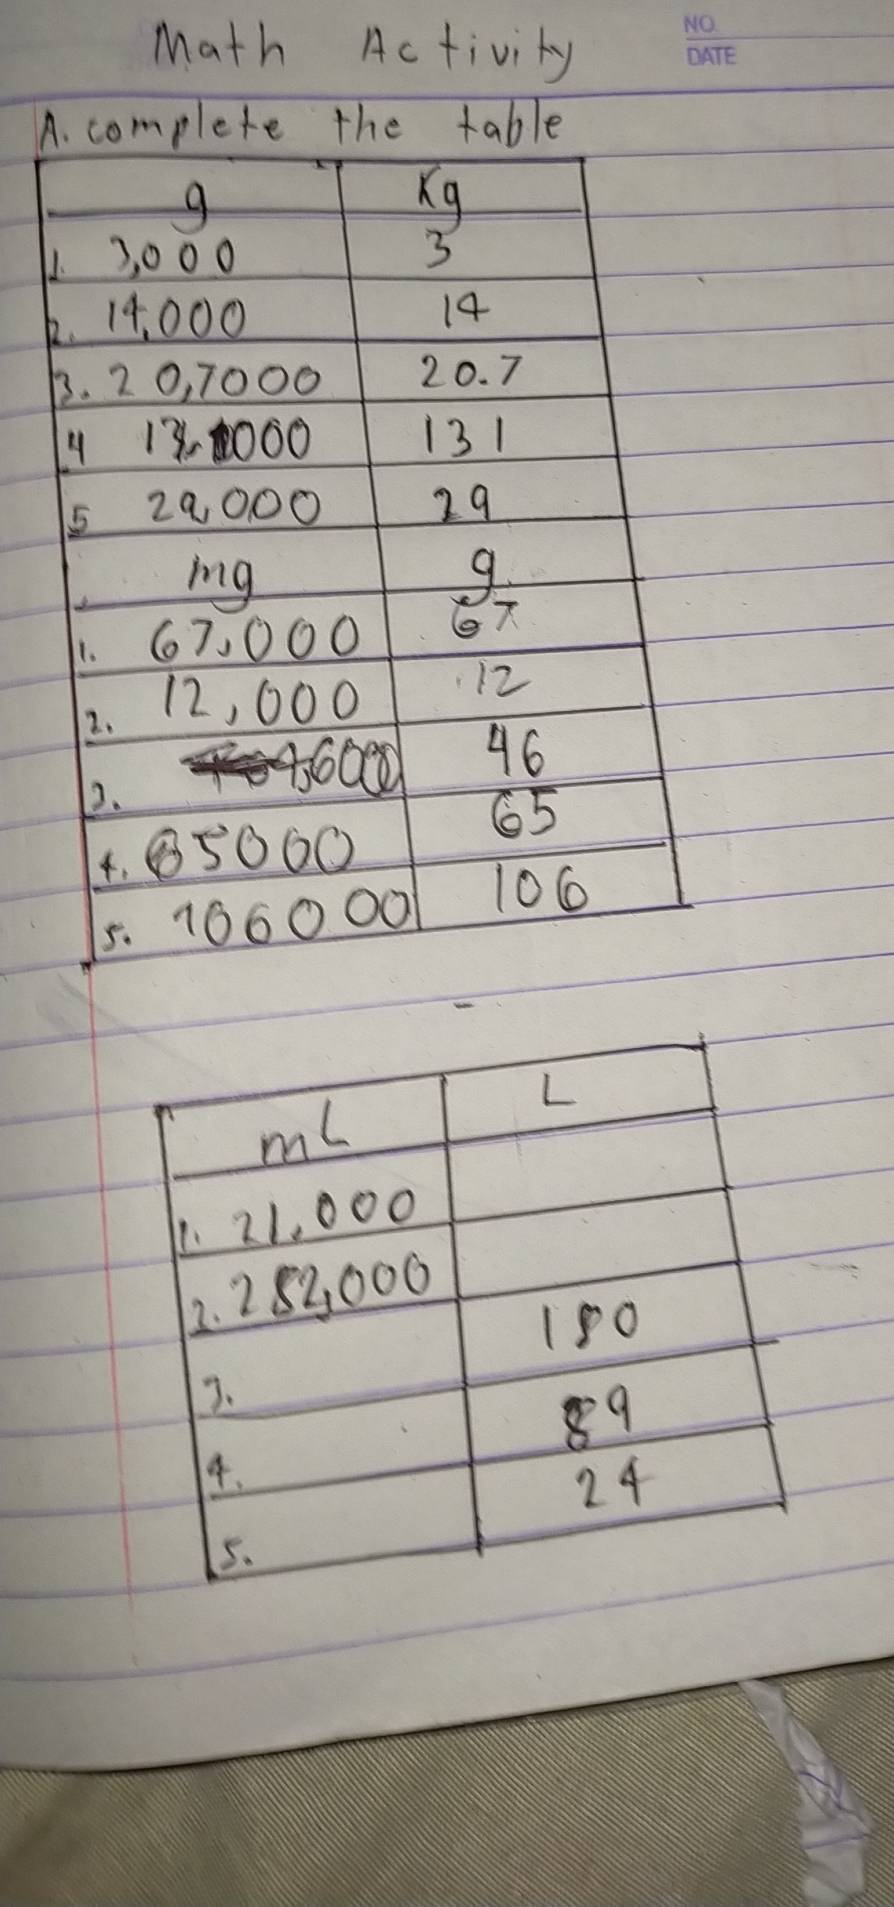 Math Activity
NO.
DATE
A. complete the table
g Kg
1. 3,000 3
2. 14,000 14
3. 20,7000 20.7
4 131000 131
5 29,000 29
mg g
1. 67,000 67
2. 12,000 12
3. 46
4. 65000 65
5. 106000 106
mL L
1. 21,000
2. 282,000
3. 180
4. 89
5. 24